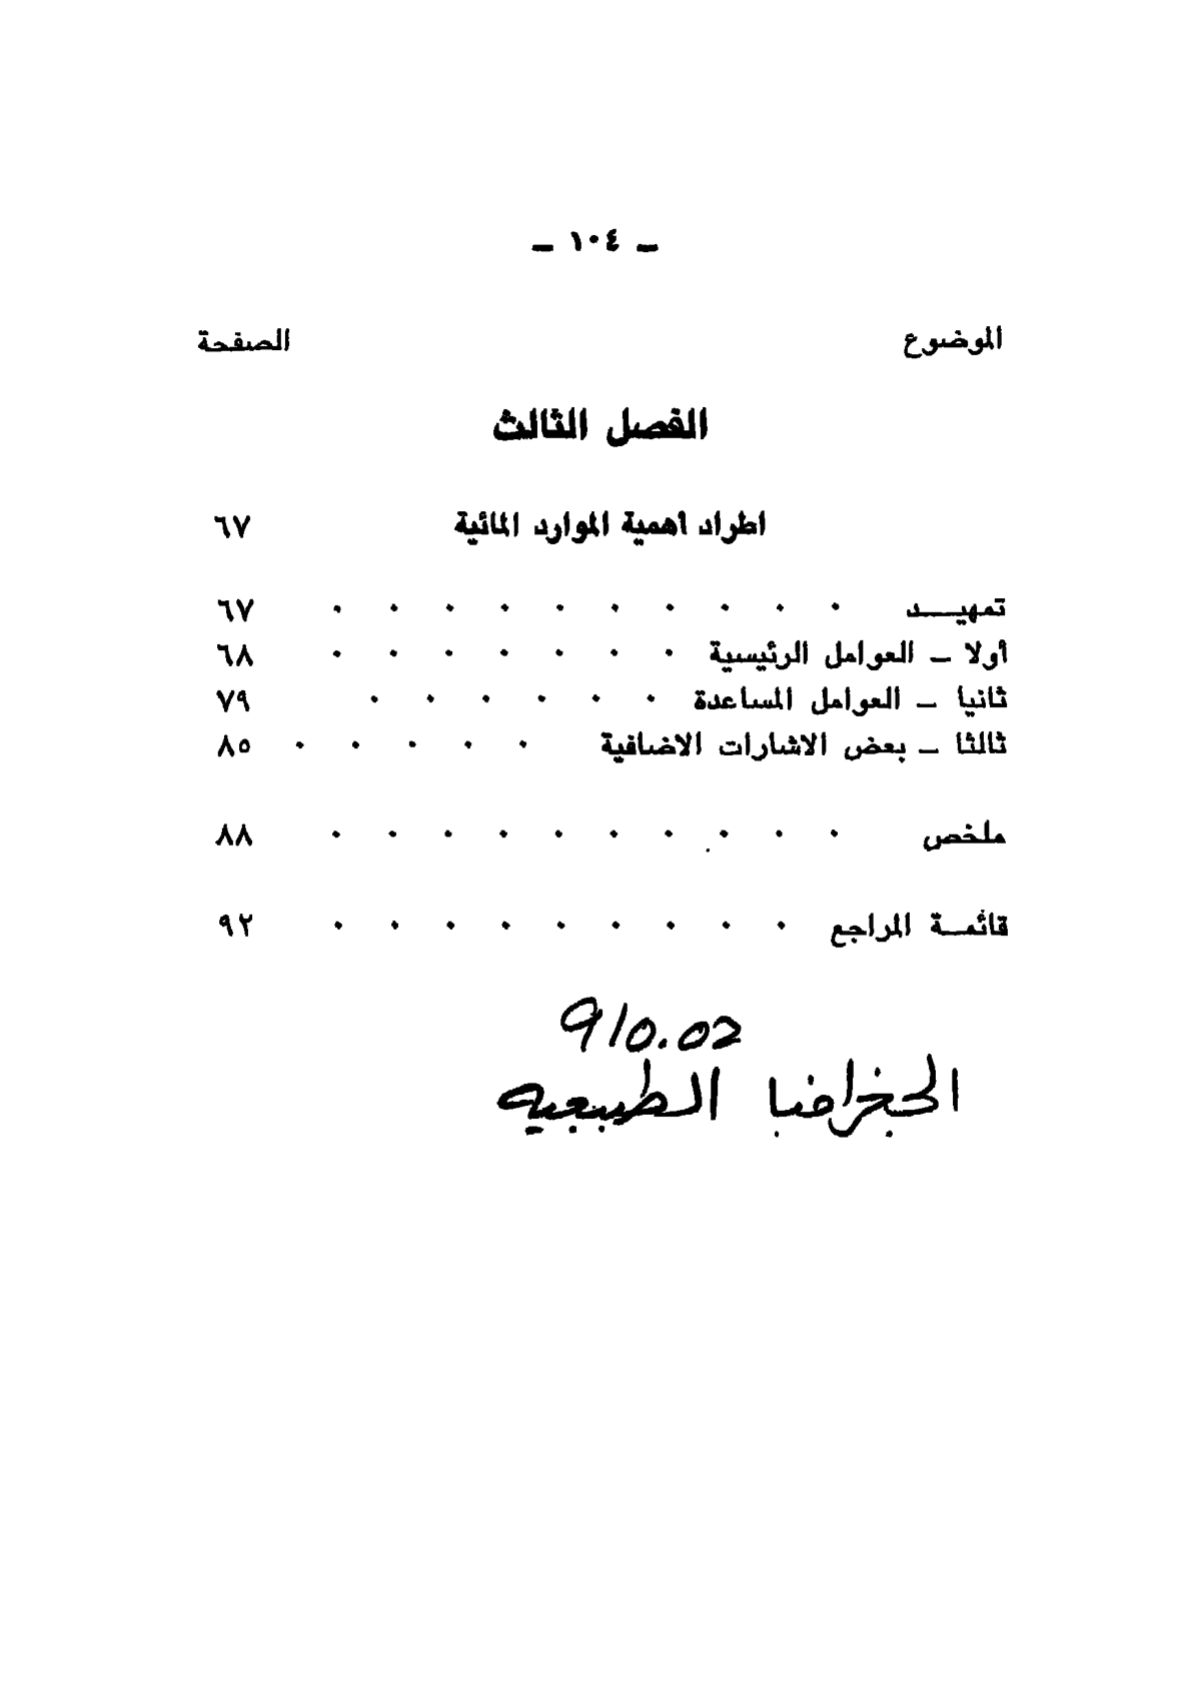 ـ ١٠٤ ـ
الموضوع الصفحة
الفصل الثالث
اطراد أهمية الموارد المائية ٦٧
تمهيـــد . . . . . . . . . . ٦٧
أولا ـ العوامل الرئيسية . . . . . . . ٦٨
ثانيا ـ العوامل المساعدة . . . . . . ٧٩
ثالثا ـ بعض الاشارات الاضافية . . . . . ٨٥
ملخص . . . . . . . . . . ٨٨
قائمـة المراجع . . . . . . . . . ٩٢
910.02
الجغرافيا الطبيعيه